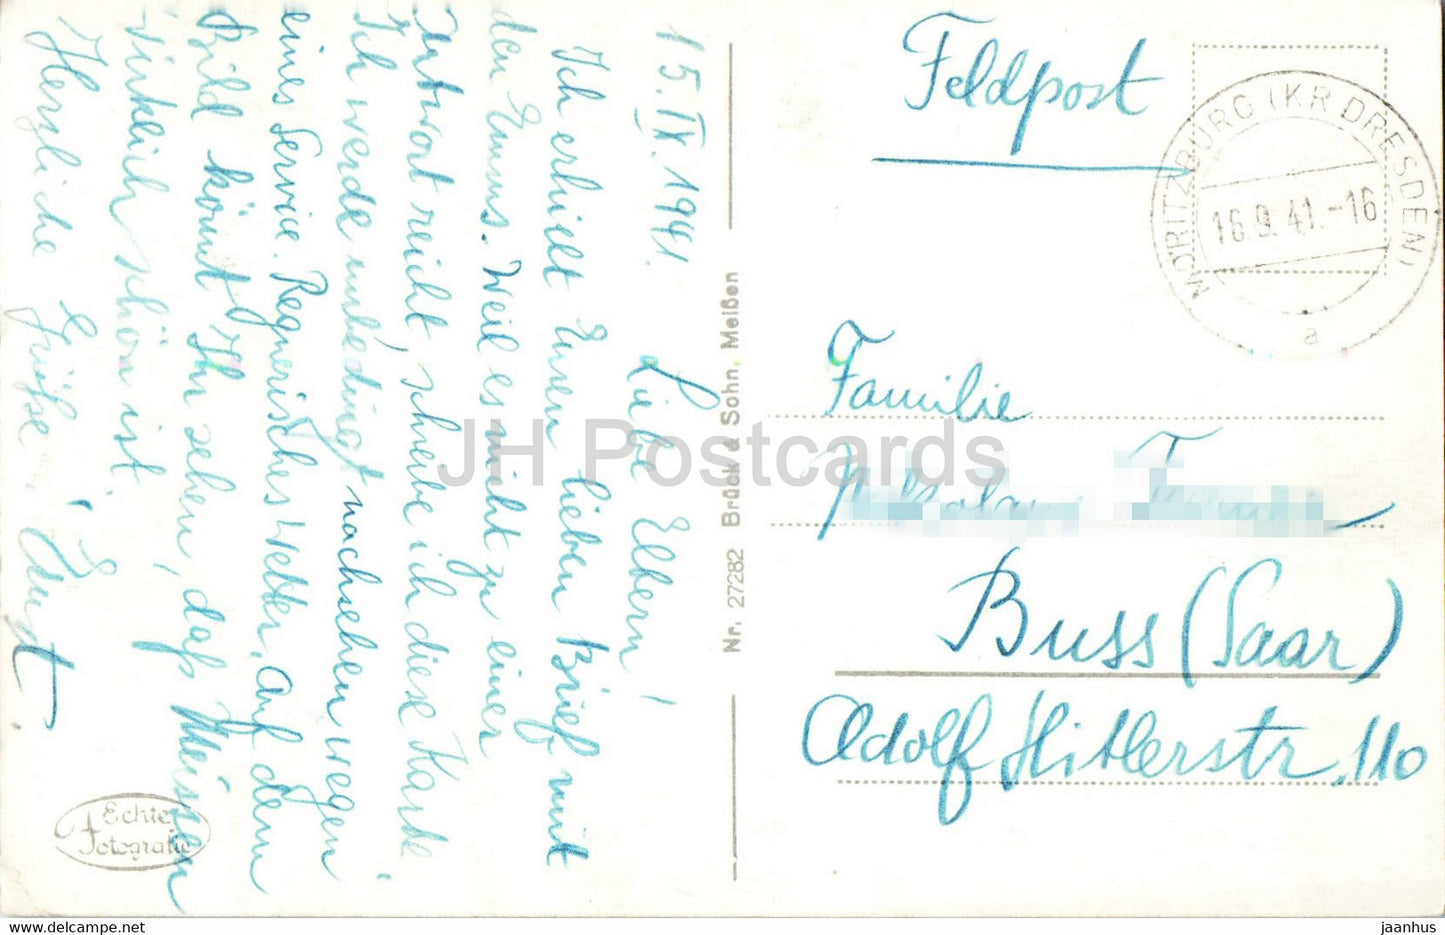 15.IX.1941.
Liebe Eltern!
Ich erhielt Euren lieben Brief mit
den Emms. Weil es nicht zu einer
Antwort reicht, schreibe ich diese Karte.
Ich werde unbedingt nachsehen wegen
eines Service. Regnerisches Wetter, auf dem
Bild könnt Ihr sehen, daß Meissen
wirklich schön ist.
Herzliche Grüße!
Echte
Fotografie
Nr. 27282 Brück & Sohn, Meißen
Feldpost
MORITZBURG (KR DRESDEN)
16.9.41.-16
a
Familie
Buss (Saar)
Adolf Hitlerstr. 110
JH Postcards
www.delcampe.net
jaanhus